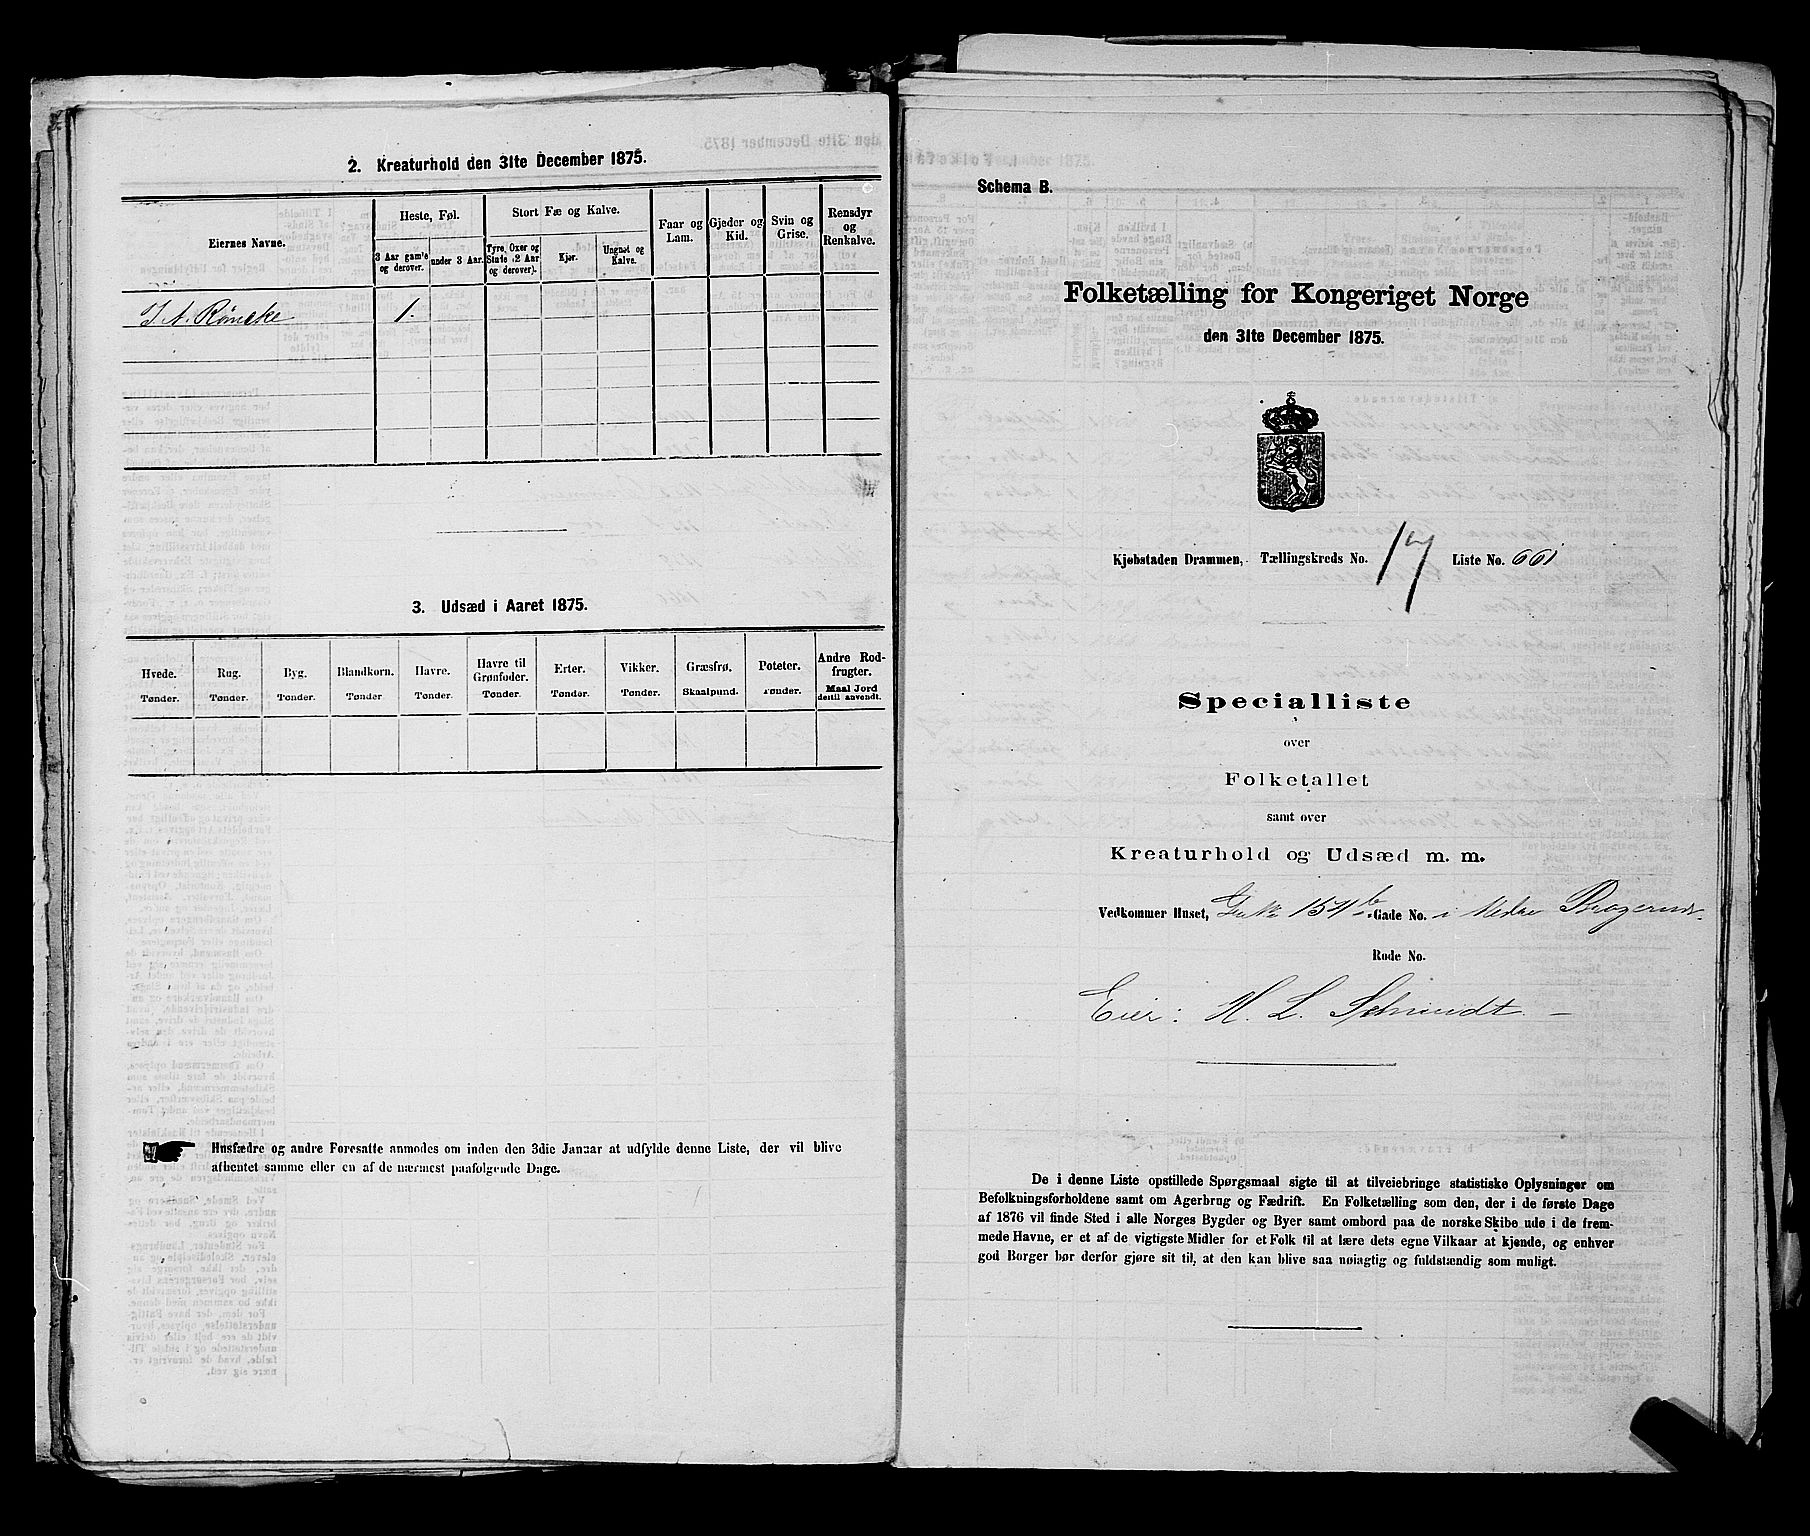 2. Kreaturhold den 31te December 1875.
Eiernes Navne.
Heste, Føl.
3 Aar gamle og derover.
under 3 Aar.
Stort Fæ og Kalve.
Tyre, Oxer og Stude (2 Aar og derover).
Kjør.
Ungnøt og Kalve.
Faar og Lam.
Gjeder og Kid.
Svin og Grise.
Rensdyr og Renkalve.
J. A. Røneke 1.
3. Udsæd i Aaret 1875.
Hvede. Tønder.
Rug. Tønder.
Byg. Tønder.
Blandkorn. Tønder
Havre. Tønder.
Havre til Grønfoder. Tønder.
Erter. Tønder.
Vikker. Tønder.
Græsfrø. Skaalpund.
Poteter. Tønder.
Andre Rodfrugter. Maal Jord dertil anvendt.
Husfædre og andre Foresatte anmodes om inden den 3die Januar at udfylde denne Liste, der vil blive
afhentet samme eller en af de nærmest paafølgende Dage.
Schema B.
Folketælling for Kongeriget Norge
den 31te December 1875.
Kjøbstaden Drammen, Tællingskreds No. 17 Liste No. 661
Specialliste
over
Folketallet
samt over
Kreaturhold og Udsæd m. m.
Vedkommer Huset, 154 b Gade No. i Nedre Bragernes
Rode No.
Eier: H. L. Schmidt. –
De i denne Liste opstillede Spørgsmaal sigte til at tilveiebringe statistiske Oplysninger om
Befolkningsforholdene samt om Agerbrug og Fædrift. En Folketælling som den, der i de første Dage
af 1876 vil finde Sted i alle Norges Bygder og Byer samt ombord paa de norske Skibe ude i de frem-
mede Havne, er et af de vigtigste Midler for et Folk til at lære dets egne Vilkaar at kjende, og enhver
god Borger bør derfor gjøre sit til, at den kan blive saa nøiagtig og fuldstændig som muligt.